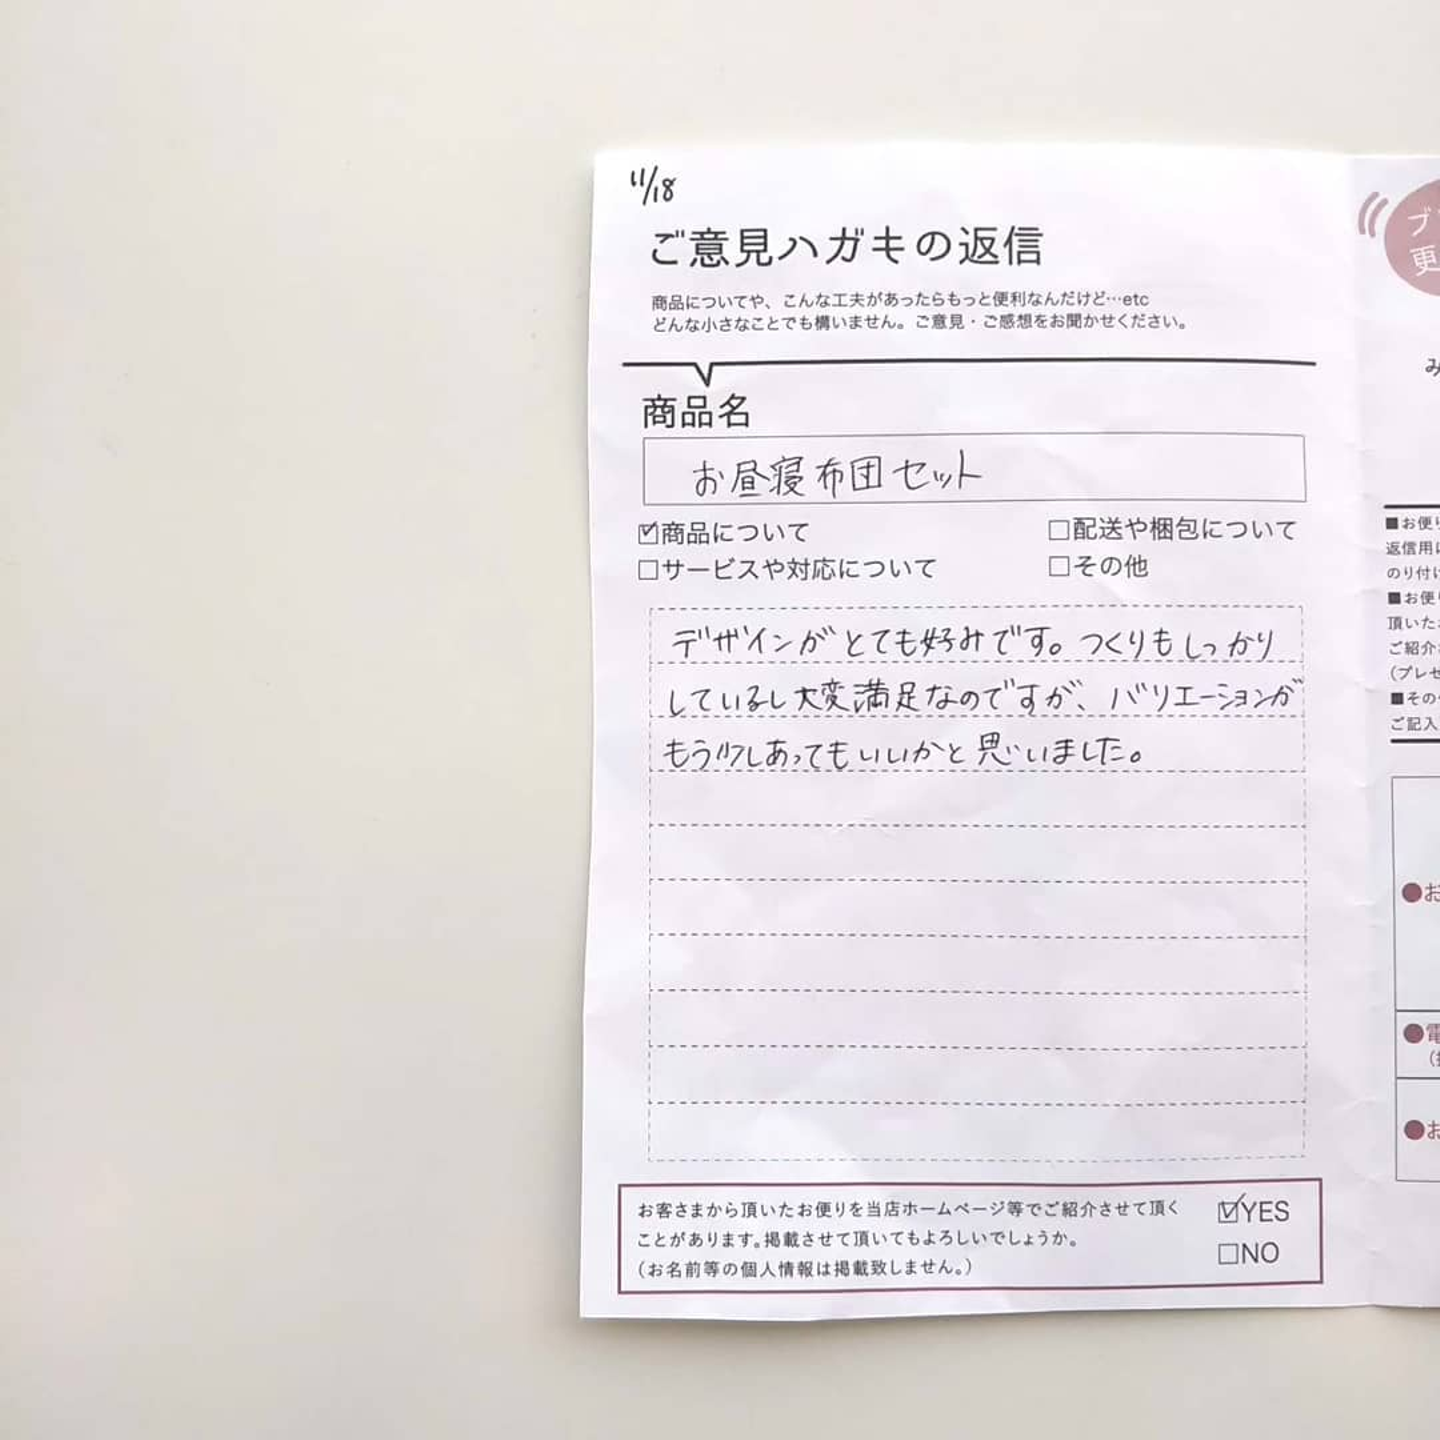 11/18
ご意見ハガキの返信
商品についてや、こんな工夫があったらもっと便利なんだけど…etc
どんな小さなことでも構いません。ご意見・ご感想をお聞かせください。
商品名
お昼寝布団セット
☑商品について
□配送や梱包について
□サービスや対応について
□その他
デザインがとても好みです。つくりもしっかり
しているし大変満足なのですが、バリエーションが
もう少しあってもいいかと思いました。
お客さまから頂いたお便りを当店ホームページ等でご紹介させて頂く
ことがあります。掲載させて頂いてもよろしいでしょうか。
（お名前等の個人情報は掲載致しません。）
☑YES
□NO
ブ
更
み
■お便り
返信用に
のり付け
■お便り
頂いた
ご紹介
（プレゼ
■その
ご記入
●お
●電
●お